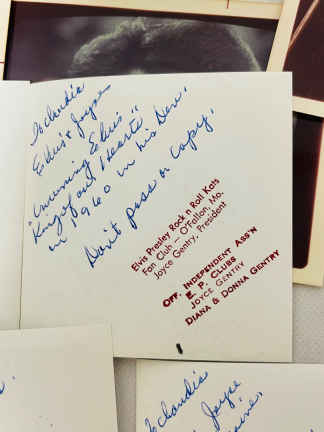 To Claudia
Elvis & Joyce
"Unusuming Elvis"
King of our Hearts"
in 1960 in his Den.
Don't pass or copy.
Elvis Presley Rock n Roll Kats
Fan Club — O'Fallon, Mo.
Joyce Gentry, President
OFF. INDEPENDENT ASS'N
E. P. CLUBS
JOYCE GENTRY
DIANA & DONNA GENTRY
To Claudia
Joyce